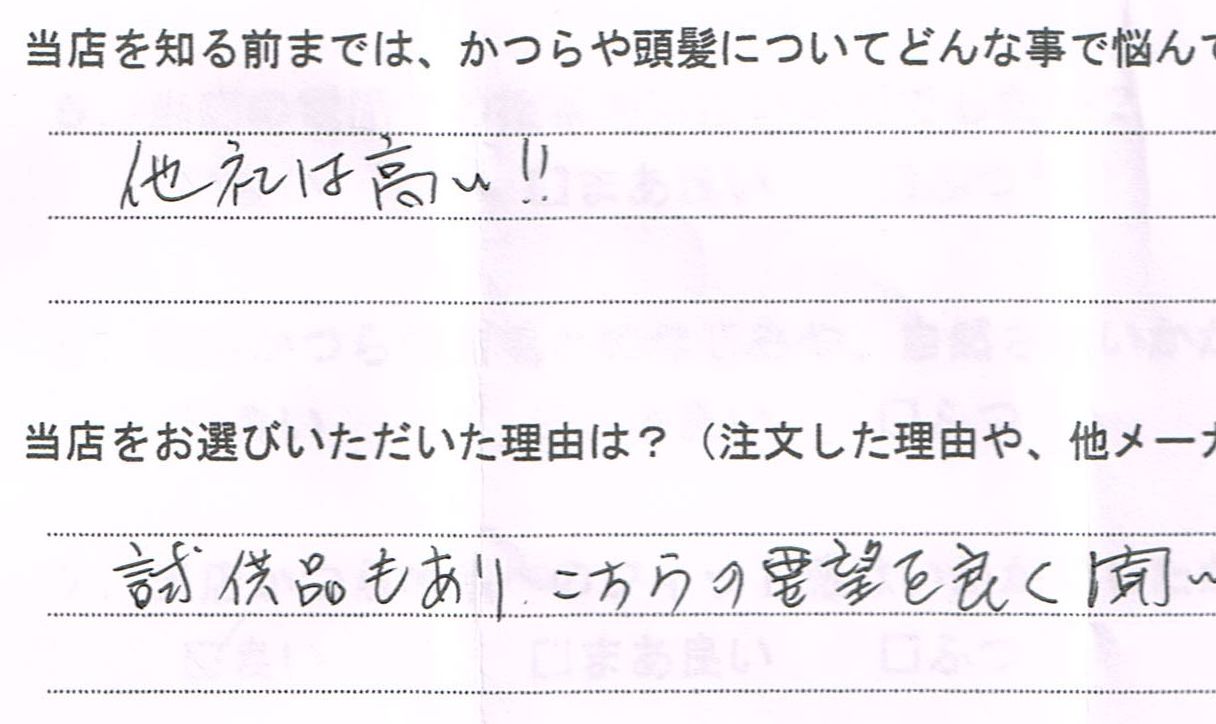 当店を知る前までは、かつらや頭髪についてどんな事で悩んで
他社は高い!!
当店をお選びいただいた理由は？（注文した理由や、他メーカ
試供品もあり、こちらの要望を良く聞い